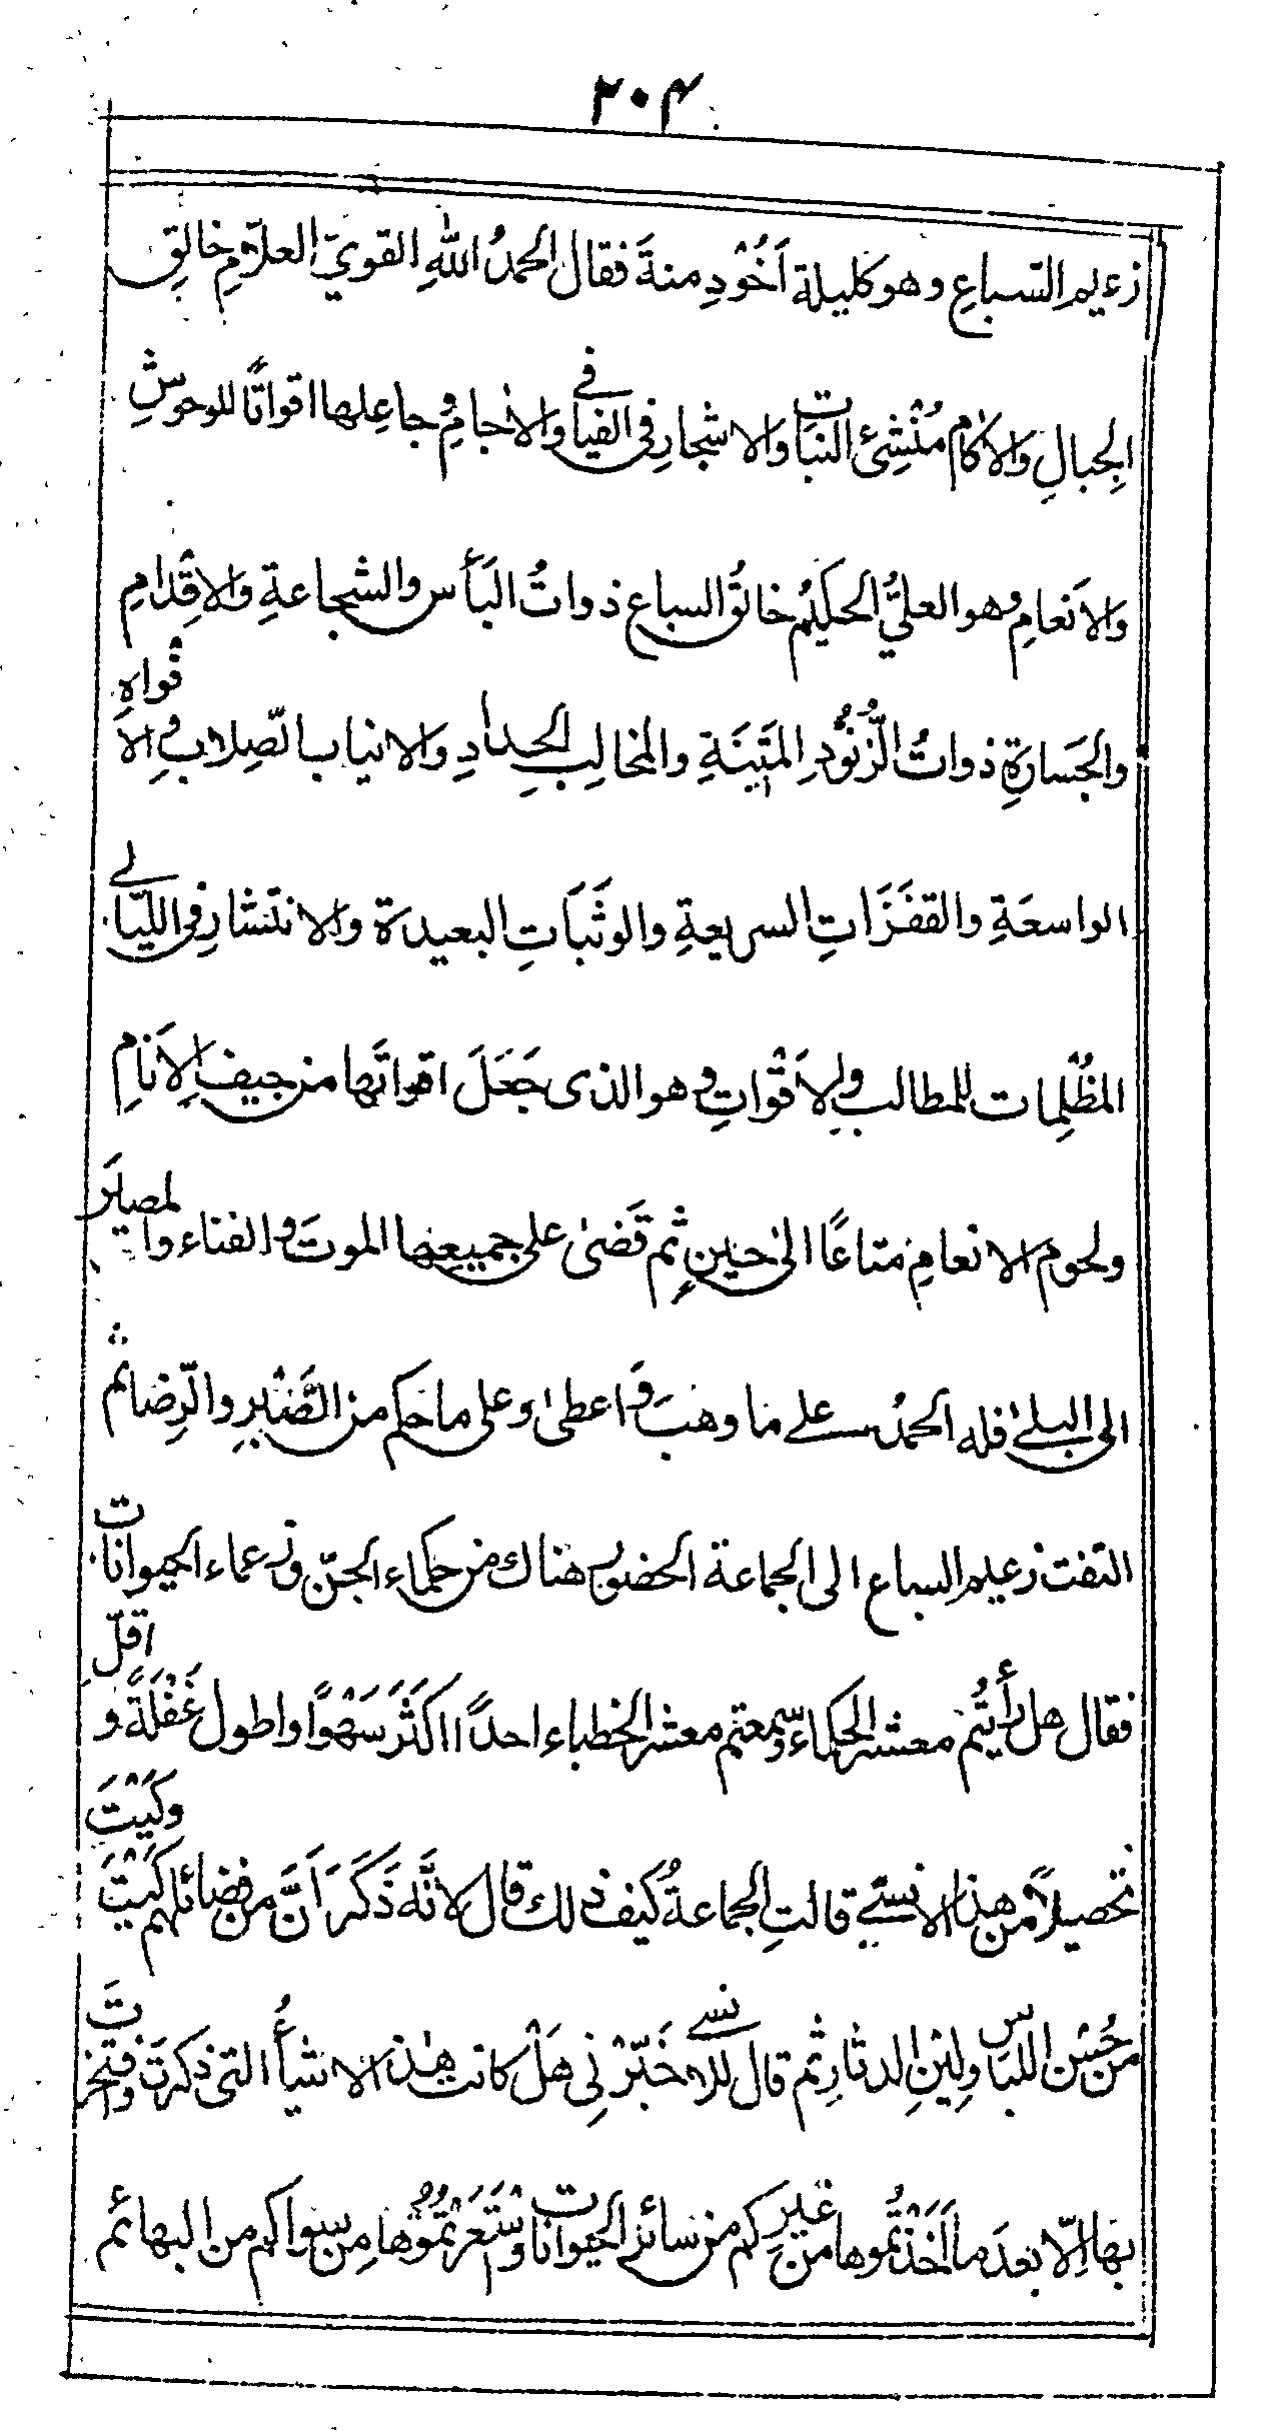 ۲۰۴
زعيم السّباعِ وهو كليلة اَخُوْدِمنةَ فقال الحمدُ اللهِ القويّ العلّامِ خالقِ
الجبالِ والاكام مُنْشِئ النبات والاشجارِ فى الفيافے والاٰجامِ وجاعِلها اقواتًا للوحوشِ
والاَنعامِ وهو العليُّ الحكيمُ خالقُ السباعِ ذواتُ البَأس والشجاعةِ والاِقْدامِ
والجَسارةِ ذواتُ الزُّنُوْدِ المَتِينَةِ والمخالِبِ الحِدادِ والانياب الصِّلابِ والاَفْواهِ
الواسعَةِ والقفَزَاتِ السريعةِ والوثَبَاتِ البعيدة والانتشارِ فى الليَالے
المُظْلِمات للمطالب ولِلاَقْوَاتِ وهو الذى جَعَلَ اقواتَها من جيفِ الاَنَامِ
ولحوم الانعامِ متاعًا الىٰ حينٍ ثم قَضىٰ على جميعِها الموتَ والفناء والمصيرَ
الى البلىٰ فله الحمدُ علے ما وهبَ وَاعطىٰ وعلى ما حكم من الصَّبْرِ والرِّضا ثم
التفت زعيم السباع الى الجماعة الحضور هناك من حكماء الجنّ وزعماء الحيوانات
فقال هل رأيتُم معشر الحكماء وسمعتم معشر الخطباء احدًا اكثَرَ سَهْوًا واطول غَفْلَةً و اقلّ
تحصيلاً من هذا الانسيّ قالتِ الجماعةُ كيف ذلك قال لانَّه ذَكَرَ اَنَّ من فضائلهم كَيْتَ وكَيْتَ
من حُسْن اللباس ولِيْنِ الدثارِ ثم قال للانسے خَبِّرْنِى هَلْ كانت هٰذه الاشيأُ التى ذكرتَ وافتخرتَ
بها اِلّا بعدَ ما اَخَذْتُموها من غيرِكم من سائر الحيوانات واسْتَعَرْتُمُوْها مِن سِواكم من البهائم